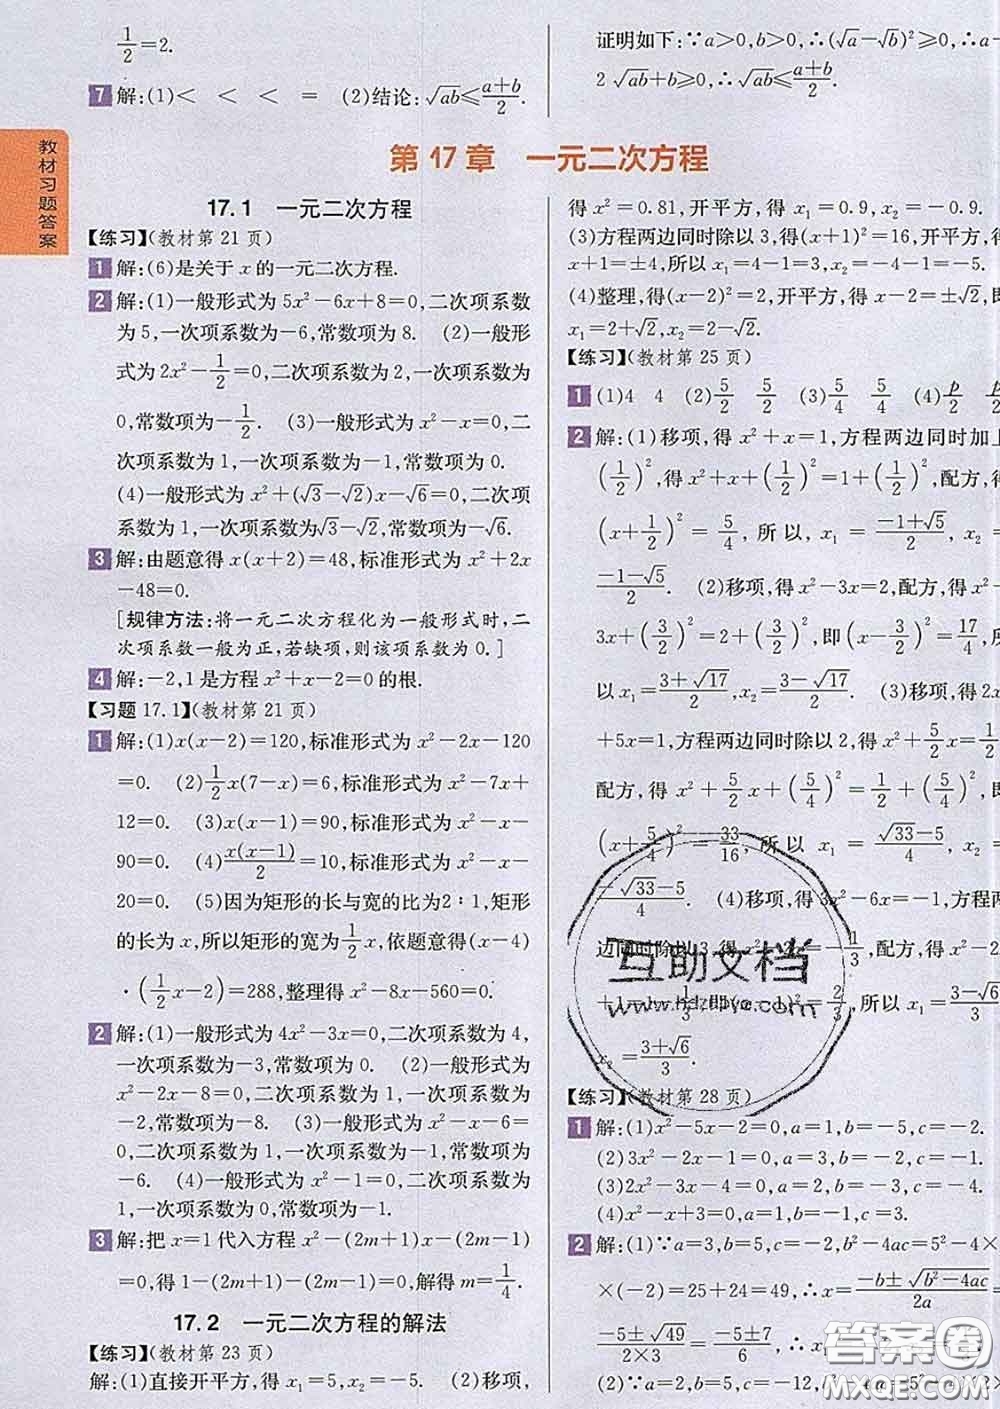 1/2=2.
7 解:(1)< < < = (2)结论:√ab≤(a+b)/2.
证明如下:∵a>0,b>0,∴(√a-√b)²≥0,∴a-
2√ab+b≥0,∴√ab≤(a+b)/2.
教材习题答案
第17章 一元二次方程
17.1 一元二次方程
【练习】(教材第21页)
1 解:(6)是关于x的一元二次方程.
2 解:(1)一般形式为5x²-6x+8=0,二次项系数
为5,一次项系数为-6,常数项为8. (2)一般形
式为2x²-1/2=0,二次项系数为2,一次项系数为
0,常数项为-1/2. (3)一般形式为x²-x=0,二
次项系数为1,一次项系数为-1,常数项为0.
(4)一般形式为x²+(√3-√2)x-√6=0,二次项
系数为1,一次项系数为√3-√2,常数项为-√6.
3 解:由题意得x(x+2)=48,标准形式为x²+2x
-48=0.
[规律方法:将一元二次方程化为一般形式时,二
次项系数一般为正,若缺项,则该项系数为0.]
4 解:-2,1是方程x²+x-2=0的根.
【习题17.1】(教材第21页)
1 解:(1)x(x-2)=120,标准形式为x²-2x-120
=0. (2)1/2x(7-x)=6,标准形式为x²-7x+
12=0. (3)x(x-1)=90,标准形式为x²-x-
90=0. (4)x(x-1)/2=10,标准形式为x²-x-
20=0. (5)因为矩形的长与宽的比为2:1,矩形
的长为x,所以矩形的宽为1/2x,依题意得(x-4)
·(1/2x-2)=288,整理得x²-8x-560=0.
2 解:(1)一般形式为4x²-3x=0,二次项系数为4,
一次项系数为-3,常数项为0. (2)一般形式为
x²-2x-8=0,二次项系数为1,一次项系数为
-2,常数项为-8. (3)一般形式为x²-x-6=
0,二次项系数为1,一次项系数为-1,常数项为
-6. (4)一般形式为x²-1=0,二次项系数为
1,一次项系数为0,常数项为-1.
3 解:把x=1代入方程x²-(2m+1)x-(2m-1)
=0,得1-(2m+1)-(2m-1)=0,解得m=1/4.
17.2 一元二次方程的解法
【练习】(教材第23页)
解:(1)直接开平方,得x₁=5,x₂=-5. (2)移项,
得x²=0.81,开平方,得x₁=0.9,x₂=-0.9.
(3)方程两边同时除以3,得(x+1)²=16,开平方,得
x+1=±4,所以x₁=4-1=3,x₂=-4-1=-5.
(4)整理,得(x-2)²=2,开平方,得x-2=±√2,即
x₁=2+√2,x₂=2-√2.
【练习】(教材第25页)
1 (1)4 4 (2)5/2 5/2 (3)5/4 5/4 (4)p/2 p/2
2 解:(1)移项,得x²+x=1,方程两边同时加上
(1/2)²,得x²+x+(1/2)²=1+(1/2)²,配方,得
(x+1/2)²=5/4,所以,x₁=(-1+√5)/2,x₂=
(-1-√5)/2. (2)移项,得x²-3x=2,配方,得x²-
3x+(3/2)²=2+(3/2)²,即(x-3/2)²=17/4,所
以x₁=(3+√17)/2,x₂=(3-√17)/2. (3)移项,得2x²
+5x=1,方程两边同时除以2,得x²+5/2x=1/2,
配方,得x²+5/2x+(5/4)²=1/2+(5/4)²,即
(x+5/4)²=33/16,所以x₁=(√33-5)/4,x₂=
(-√33-5)/4. (4)移项,得3x²-6x=-1,方程两
边同时除以3,得x²-2x=-1/3,配方,得x²-2x
+1=-1/3+1,即(x-1)²=2/3,所以x₁=(3-√6)/3,
x₂=(3+√6)/3.
互助文档
【练习】(教材第28页)
1 解:(1)x²-5x-2=0,a=1,b=-5,c=-2.
(2)3x²-2x-1=0,a=3,b=-2,c=-1.
(3)2x²-3x-4=0,a=2,b=-3,c=-4.
(4)x²-x+3=0,a=1,b=-1,c=3.
2 解:(1)∵a=3,b=5,c=-2,b²-4ac=5²-4×
×(-2)=25+24=49,∴x=(-b±√(b²-4ac))/2a=
(-5±√49)/(2×3)=(-5±7)/6,∴x₁
(2)∵a=2,b=5,c=-12,
答案圈
MXQE.COM